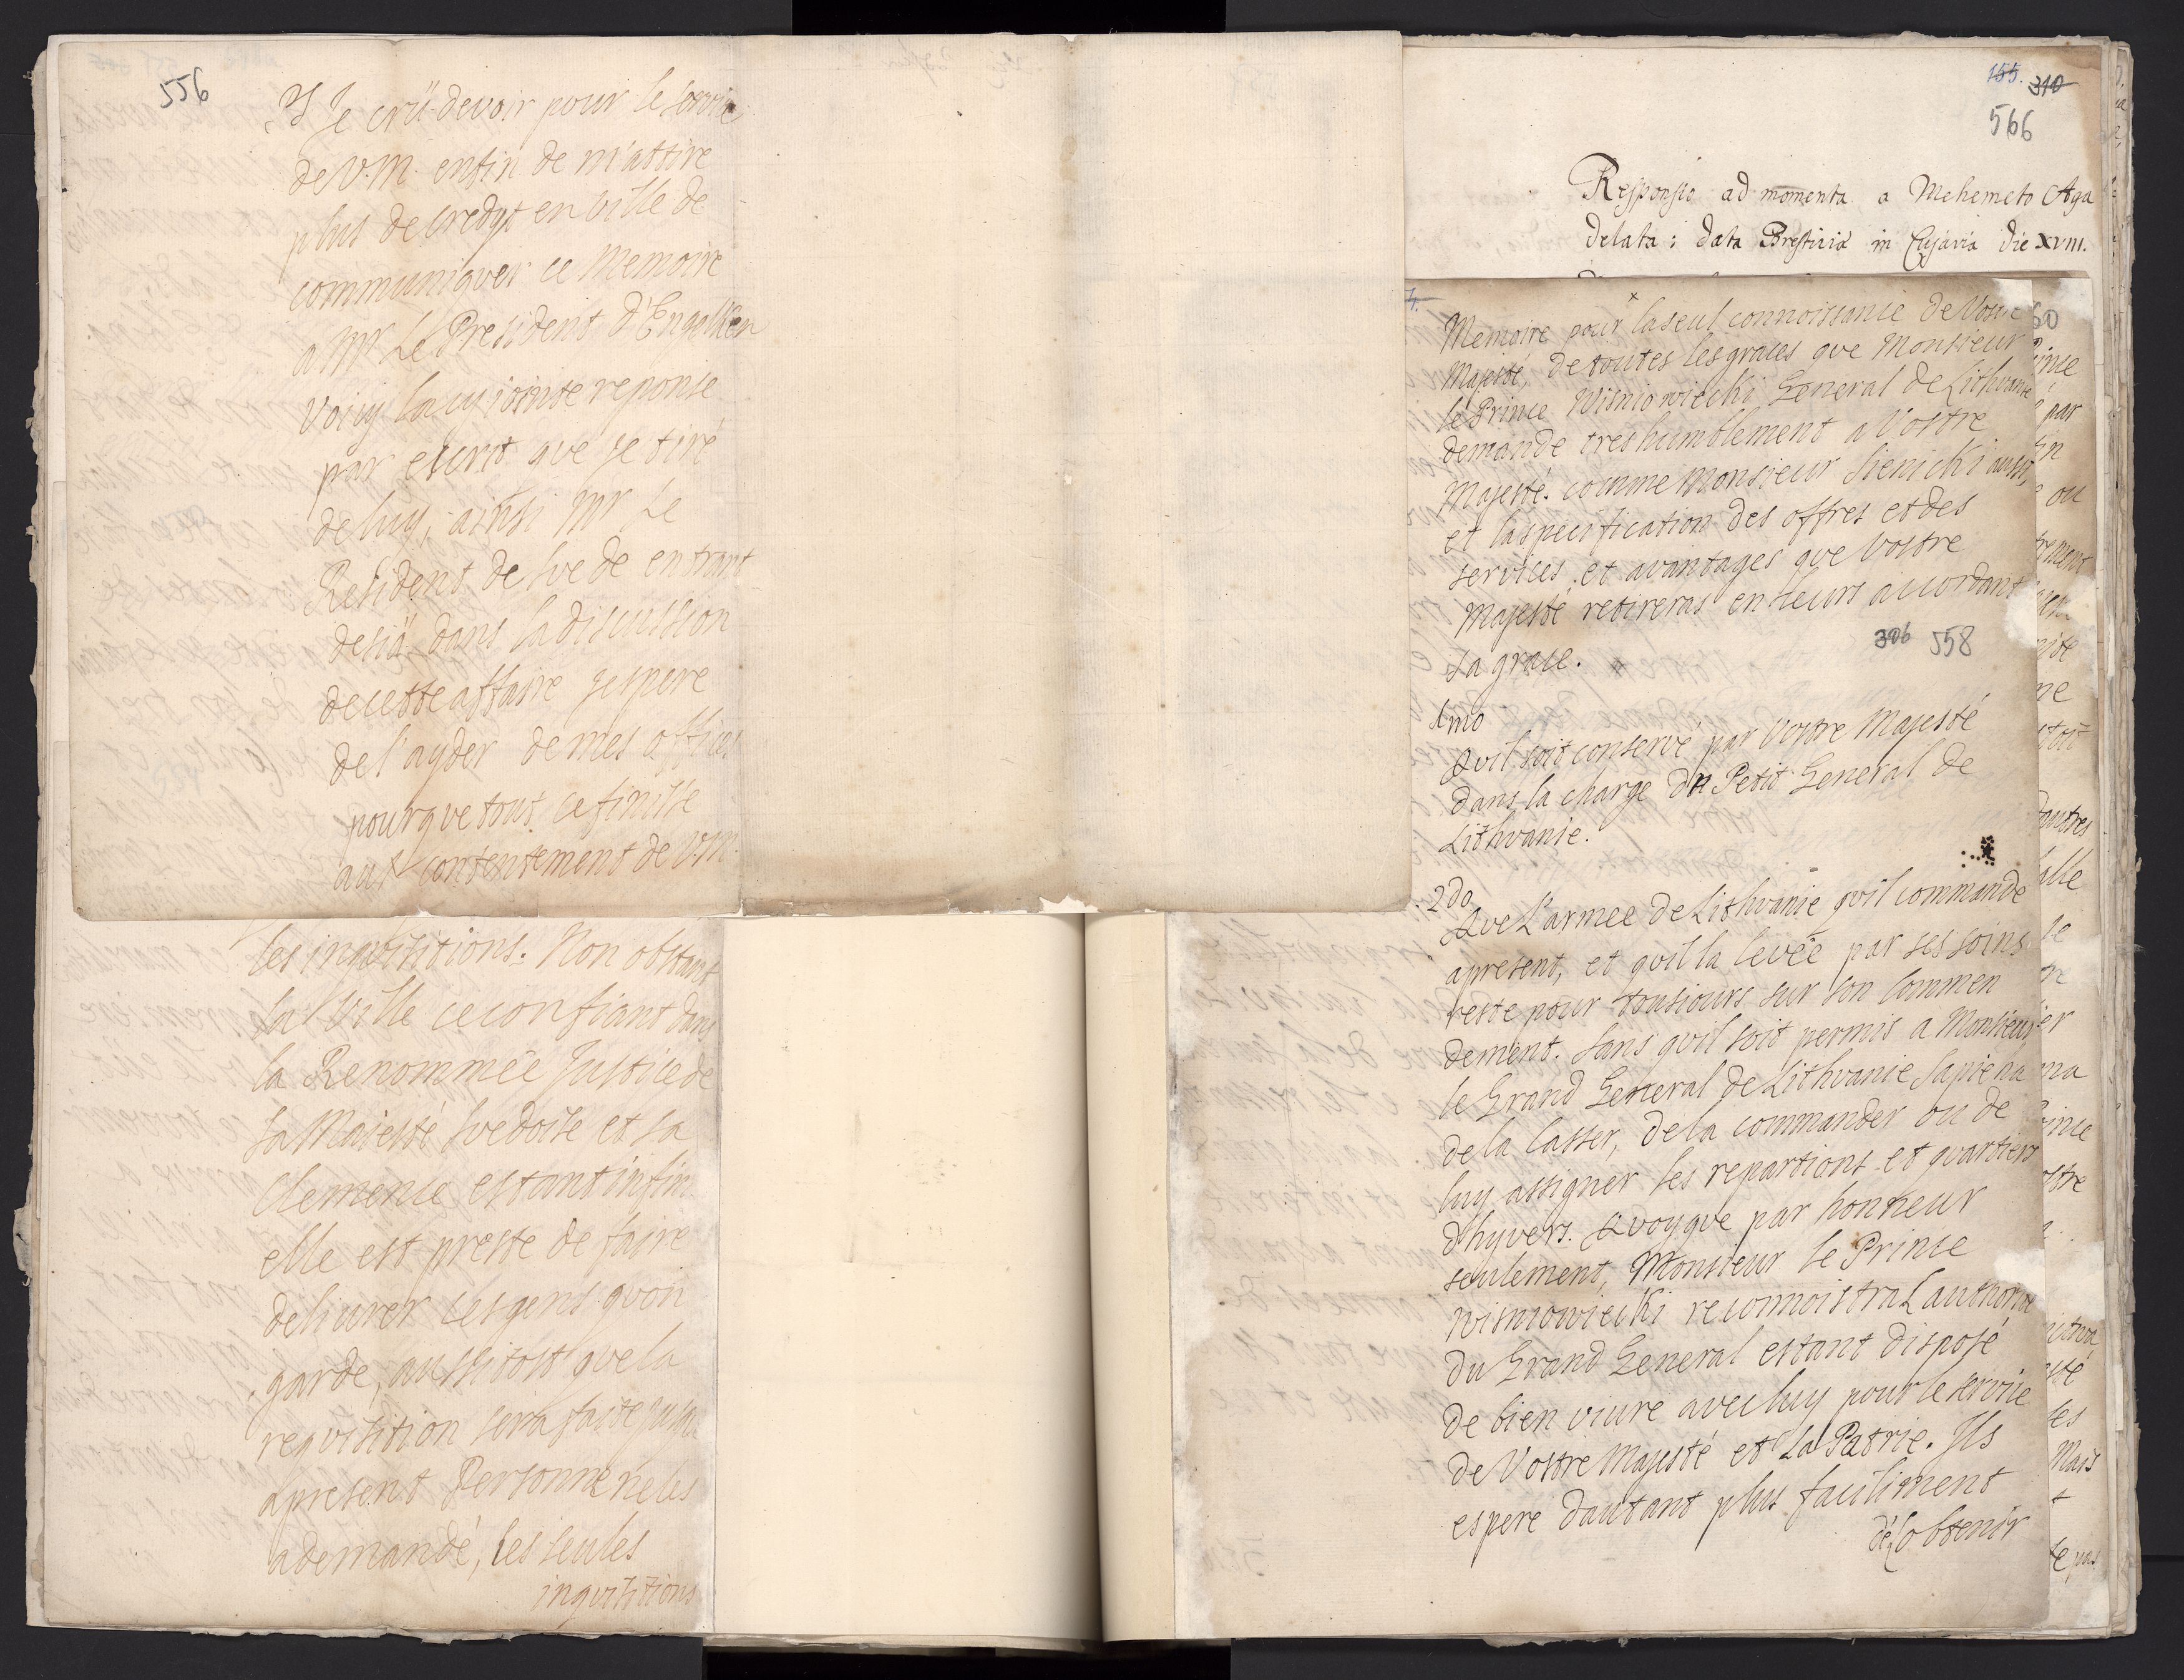 556
J Je crü devoir pour le servic
de V.M. enfin de m'attire
plus de credyt en ville de
communiquer ce Memoire
a Mr Le President d'Engelken
voicy la cy jointe reponse
par escrit que je tiré
de luy, ainsi Mr Le
Resident de Svede entrant
desià dans la discussion
de cette affaire jespere
del'ayder de mes offices
pour que tout ce finisse
aux contentement de V.M.
les inquisitions. Non obstant
la Ville ce confiant dans
la Renommée Justice de
Sa Majesté Svedoise et sa
Clemence estant infin
elle est preste de faire
delivrer ces gens qvon
garde, aussitost que la
requisition sera faite jusqu
apresent Personne ne les
a demandé, les seules
inquisitions
155. 310
566
Responsio ad momenta a Mehemeto Aga
delata: data Bresticiæ in Cujavia die XVIII.
Memoire pour la seul connoissance de Vostre
Majesté, de toutes les graces que Monsieur
le Prince Wisniowiecki General de Lithvanie
demande tres humblement a Vostre
Majesté. comme Monsieur Sienicki aussi,
et la specification des offres et des
services, et avantages que Vostre
Majesté retireras en leurs accordant
sa grace.
306 558
1mo
Qvil soit conservé par Vostre Majesté
dans la charge du Petit General de
Lithvanie.
2do
Qve L'armee de Lithvanie qvil commande
apresent, et qvil la levée par ses soins
reste pour tousiours sur son Commen
dement. sans qvil soit permis a Monsieur
le Grand General de Lithvanie Sapieha
de la casser, de la commander ou de
luy assigner les repartions et qvartiers
d'hyvers. Qvoyque par honneur
seulement, Monsieur le Prince
Wisniowiecki reconnoistra L'authorité
du Grand General estant disposé
de bien vivre avec luy pour le service
de Vostre Majesté et La Patrie. Ils
espere dautant plus facilement
del'obtenir
60
ince
par
ou
rement
me
dautres
alle
le
er
ma
rince
ostre
les
Mais
le pas